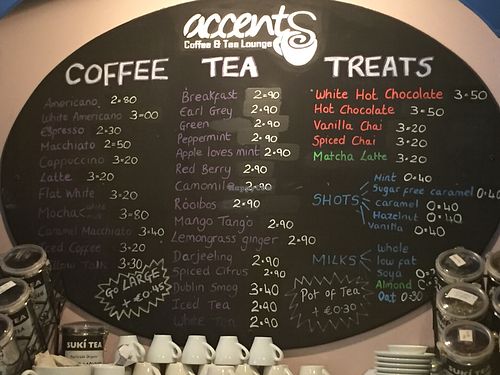 accents
Coffee & Tea Lounge
COFFEE
Americano 2.80
White Americano 3.00
Espresso 2.30
Macchiato 2.50
Cappuccino 3.20
Latte 3.20
Flat White 3.20
Mocha 3.80
Caramel Macchiato 3.40
Iced Coffee 3.20
3.30
Go LARGE
+ €0.45
TEA
Breakfast 2.90
Earl Grey 2.90
Green 2.90
Peppermint 2.90
Apple loves mint 2.90
Red Berry 2.90
Camomile 2.90
Rooibos 2.90
Mango Tango 2.90
Lemongrass ginger 2.90
Darjeeling 2.90
Spiced Citrus 2.90
Dublin Smog 3.40
Iced Tea 2.90
White Tea 2.90
TREATS
White Hot Chocolate 3.50
Hot Chocolate 3.50
Vanilla Chai 3.20
Spiced Chai 3.20
Matcha Latte 3.20
SHOTS
Mint 0.40
Sugar free caramel 0.40
caramel 0.40
Hazelnut 0.40
Vanilla 0.40
MILKS
Whole
low fat
Soya
Almond
Oat 0.30
Pot of Tea
+ €0.30
SUKI TEA
SUKI TEA